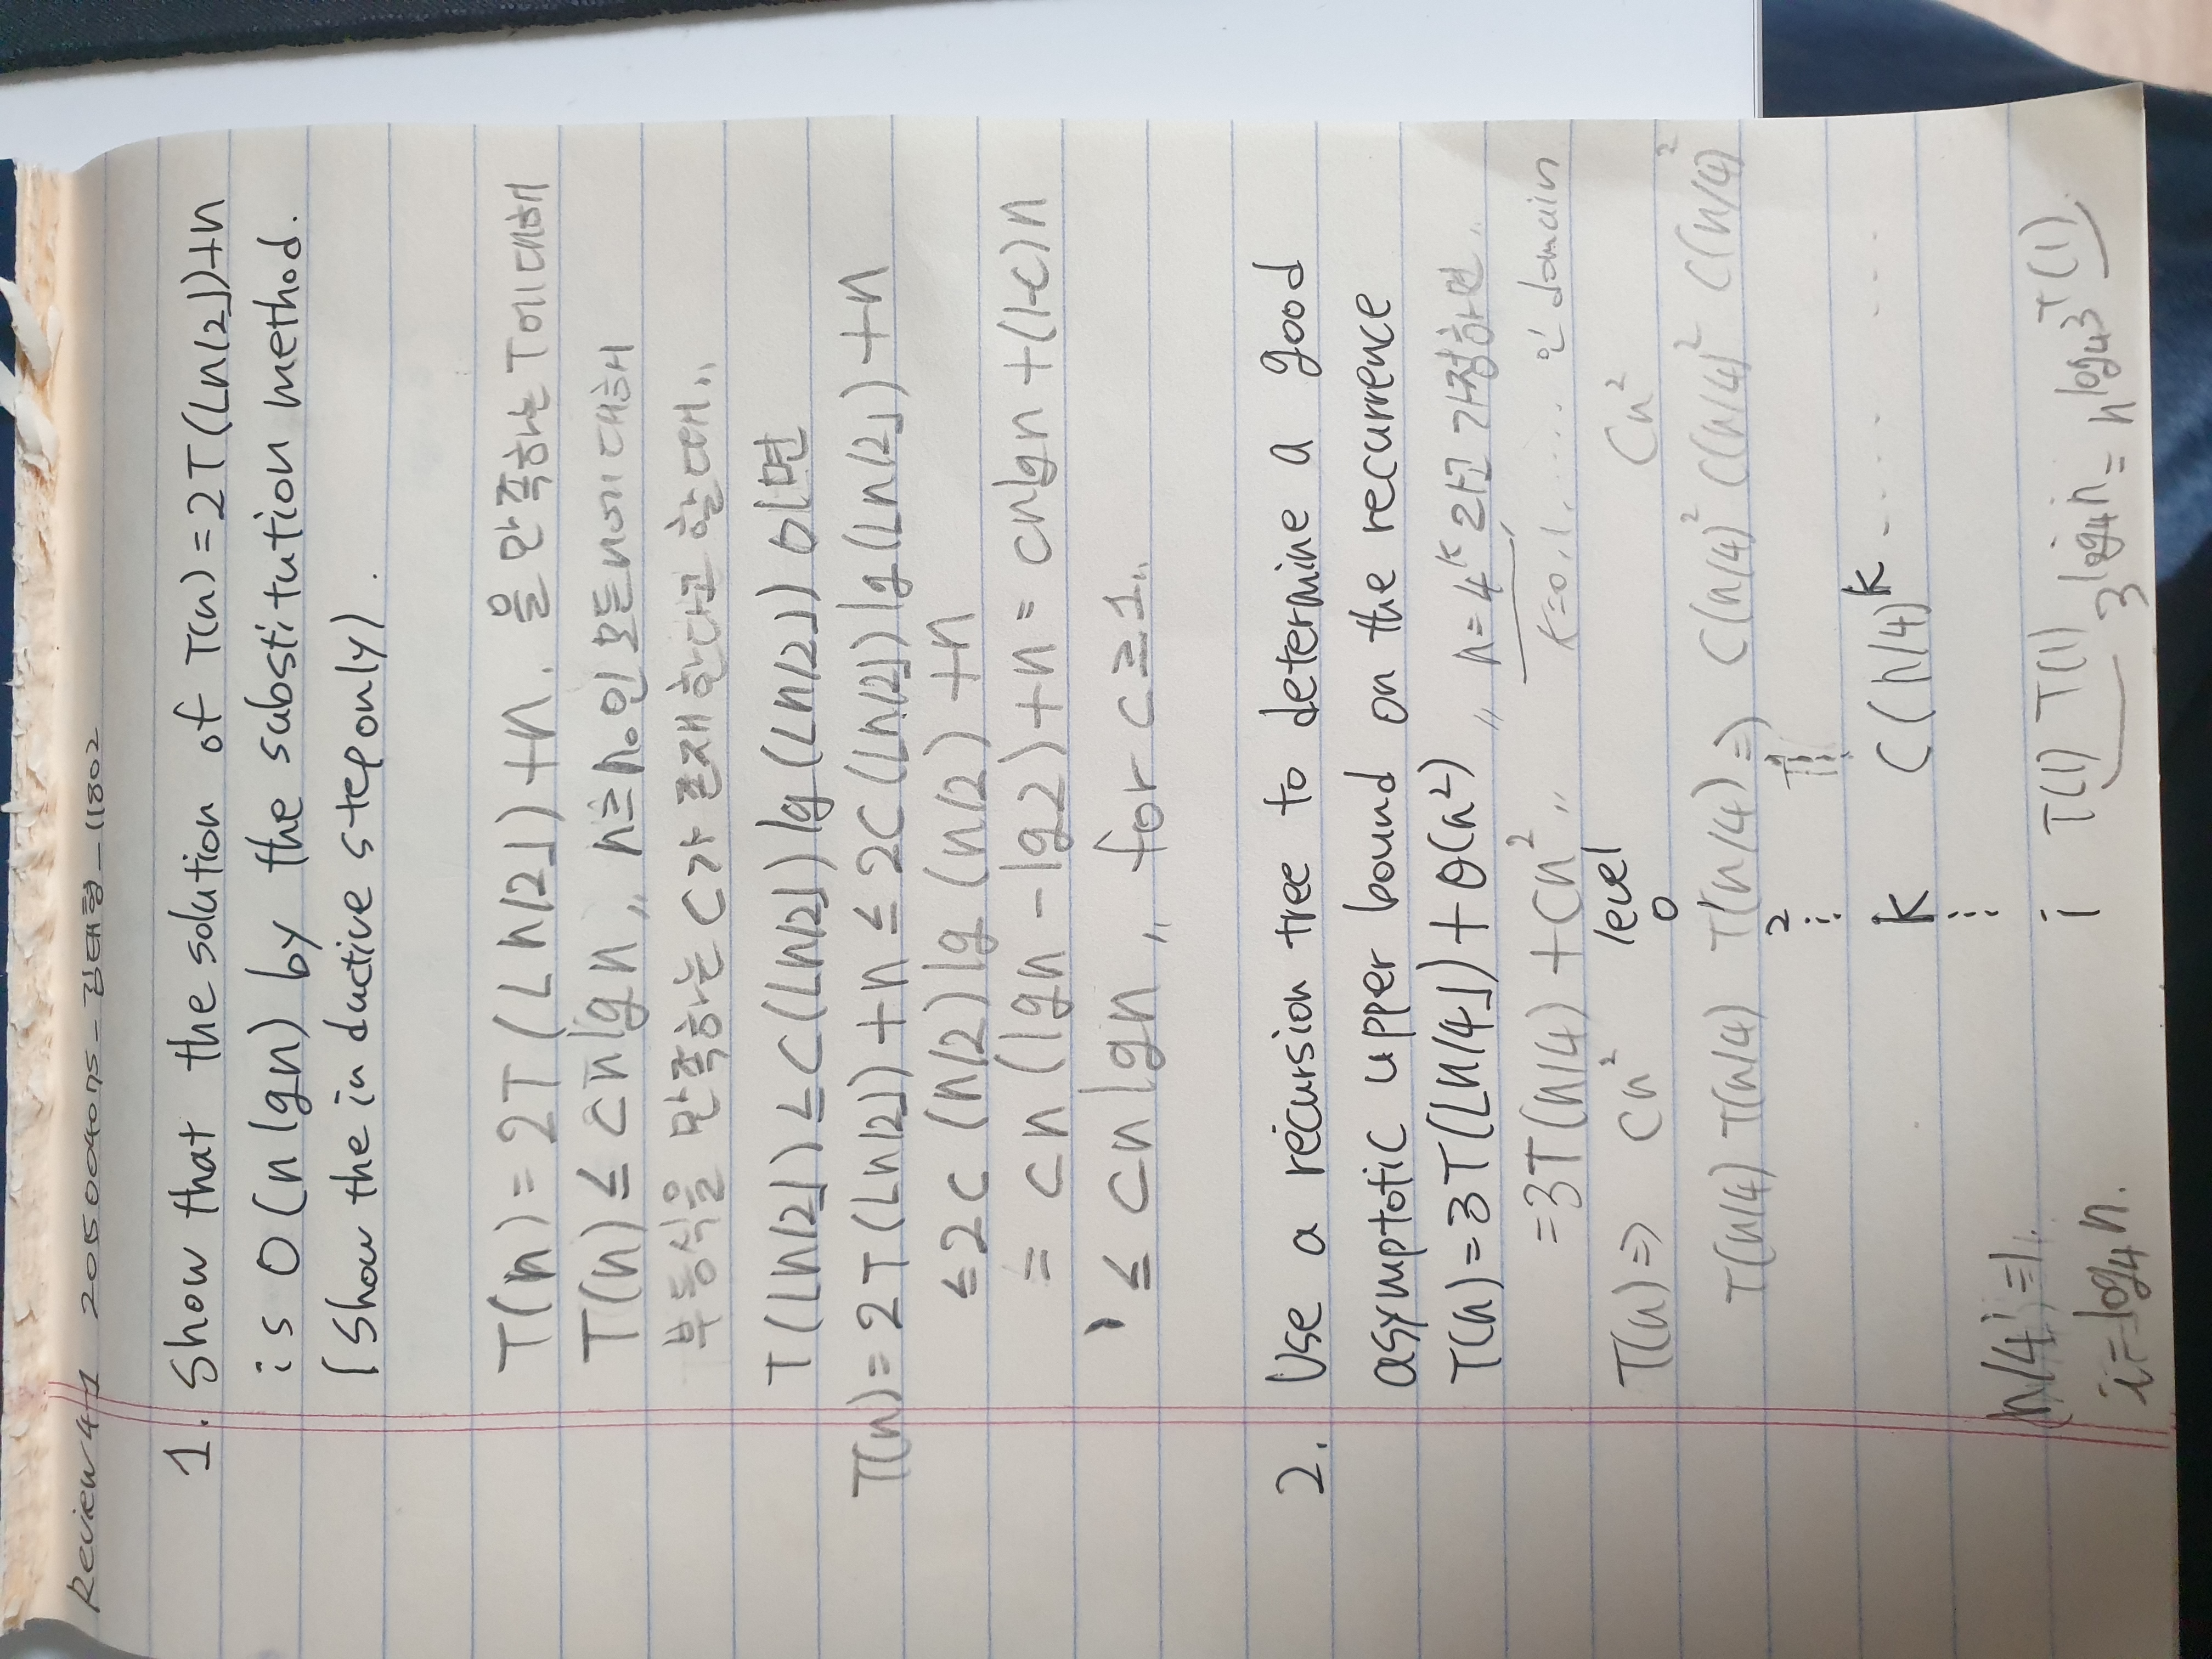 Review 4-1 2015004075_김태형_11802
1. Show that the solution of T(n)=2T(⌊n/2⌋)+n
is O(n lgn) by the substitution method.
(Show the inductive step only).
T(n)=2T(⌊n/2⌋)+n. 을 만족하는 T에 대해
T(n) ≤ cnlgn,, n≥n₀인 모든 n에 대해
부등식을 만족하는 C가 존재한다고 할 때,,
T(⌊n/2⌋) ≤ C(⌊n/2⌋) lg(⌊n/2⌋) 이면
T(n)= 2T(⌊n/2⌋)+n ≤ 2C(⌊n/2⌋) lg(⌊n/2⌋)+n
≤2c (n/2) lg (n/2) +n
= cn (lgn - lg2)+n = cnlgn +(1-c)n
≤ cnlgn ,, for c≥1,,
2. Use a recursion tree to determine a good
asymptotic upper bound on the recurrence
T(n)=3T(⌊n/4⌋)+θ(n²) ,, n=4ᵏ 라고 가정하면,,
=3T(n/4)+Cn²,, k=0,1,..... 인 domain
T(n)=> Cn² level Cn²
0
T(n/4) T(n/4) 1 T(n/4)=> C(n/4)² C(n/4)² C(n/4)²
2
⋮
k C(n/4)ᵏ ..... ...
⋮
n/4ⁱ=1.
i T(1) T(1) 3^log₄n = n^log₄3 T(1)
i=log₄n.